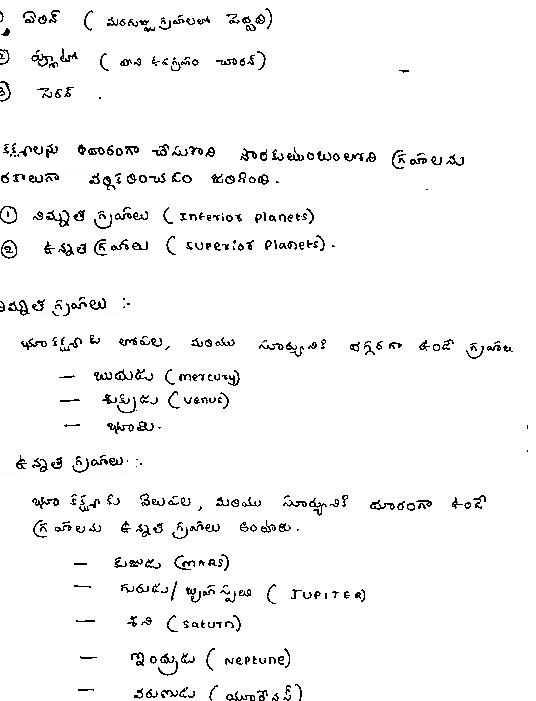 ① ఏరిస్ ( మరుగుజ్జు గ్రహాలలో పెద్దది)
② ప్లూటో ( దాని ఉపగ్రహం చారన్ )
③ సెరస్ .
కక్ష్యలను ఆధారంగా చేసుకొని సౌరకుటుంబంలోని గ్రహాలను
రకాలుగా వర్గీకరించడం జరిగింది.
① నిమ్నత గ్రహాలు ( Interior planets)
② ఉన్నత గ్రహాలు ( superior Planets) .
నిమ్నత గ్రహాలు :-
భూకక్ష్యకు లోపల, మరియు సూర్యునికి దగ్గరగా ఉండే గ్రహాలు
— బుధుడు ( mercury)
— శుక్రుడు ( venus)
— భూమి.
ఉన్నత గ్రహాలు :-
భూ కక్ష్యకు వెలుపల , మరియు సూర్యునికి దూరంగా ఉండే
గ్రహాలను ఉన్నత గ్రహాలు అంటారు.
— కుజుడు (MARS)
— గురుడు/ బృహస్పతి ( JUPITER)
— శని ( Saturn)
— ఇంద్రుడు ( Neptune)
— వరుణుడు ( యురేనస్)